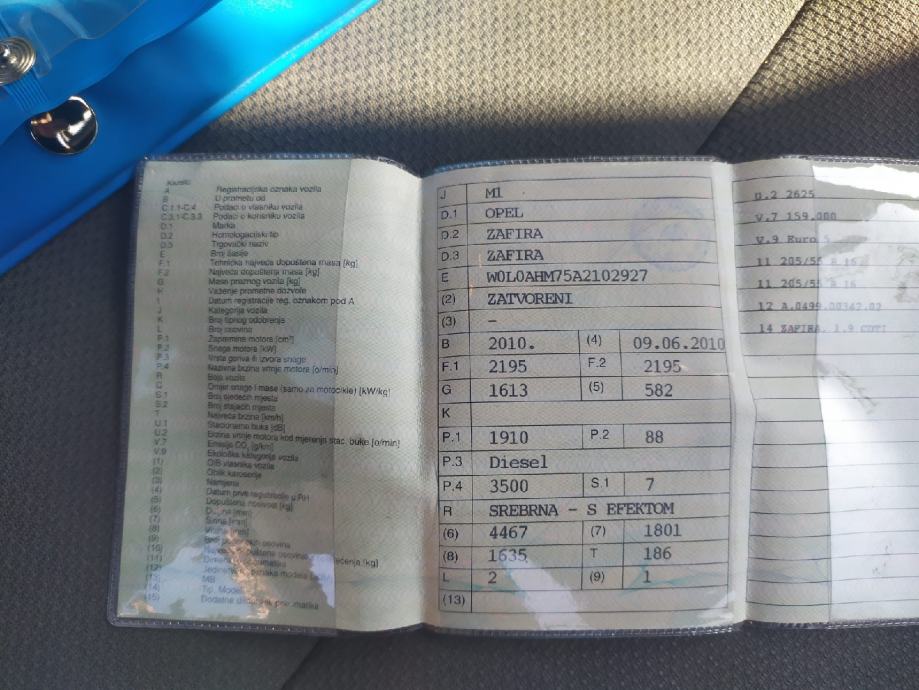 A Registracijska oznaka vozila
B U prometu od
C.1.1-C.4 Podaci o vlasniku vozila
C.3.1-C.3.3 Podaci o korisniku vozila
D.1 Marka
D.2 Homologacijski tip
D.3 Trgovački naziv
E Broj šasije
F.1 Tehnička najveća dopuštena masa [kg]
F.2 Najveća dopuštena masa [kg]
G Masa praznog vozila [kg]
H Važenje prometne dozvole
I Datum registracije reg. oznakom pod A
J Kategorija vozila
K Broj tipnog odobrenja
L Broj osovina
P.1 Zapremina motora [cm³]
P.2 Snaga motora [kW]
P.3 Vrsta goriva ili izvora snage
P.4 Nazivna brzina vrtnje motora [o/min]
R Boja vozila
Q Omjer snage i mase (samo za motocikle) [kW/kg]
S.1 Broj sjedećih mjesta
S.2 Broj stajaćih mjesta
T Najveća brzina [km/h]
U.1 Stacionarna buka [dB]
U.2 Brzina vrtnje motora kod mjerenja stac. buke [o/min]
V.7 Emisija CO₂ [g/km]
V.9 Ekološka kategorija vozila
(1) OIB vlasnika vozila
(2) Oblik karoserije
(3) Namjena
(4) Datum prve registracije u RH
(5) Dopuštena nosivost [kg]
(6)
(7)
(8)
(9)
(10)
(11)
(12)
(13) MB
(14) Tip, Model
(15)
J M1
D.1 OPEL
D.2 ZAFIRA
D.3 ZAFIRA
E W0L0AHM75A2102927
(2) ZATVORENI
(3) –
B 2010. (4) 09.06.2010
F.1 2195 F.2 2195
G 1613 (5) 582
K
P.1 1910 P.2 88
P.3 Diesel
P.4 3500 S.1 7
R SREBRNA - S EFEKTOM
(6) 4467 (7) 1801
(8) 1635 T 186
L 2 (9) 1
(13)
D.2 2625
V.7 159.000
V.9 Euro 5
11 205/55 R 16
11 205/55 R 16
12 A.0499.00347.02
14 ZAFIRA, 1.9 CDTI